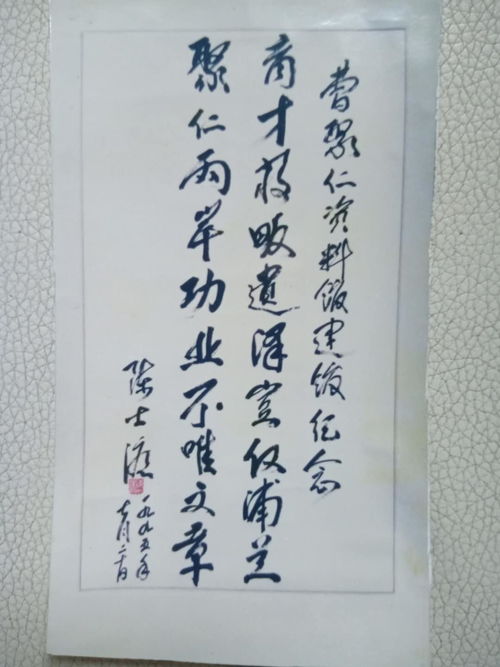 曹聚仁资料馆建馆纪念
育才蒋畈遗泽岂仅浦兰
聚仁两岸功业不唯文章
陈士濂
一九九五年
七月二十日